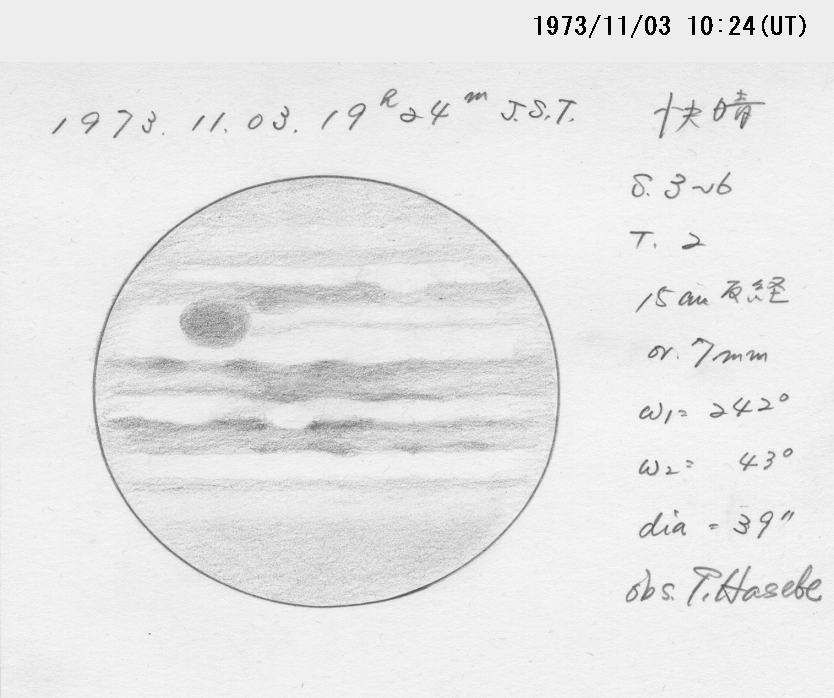 1973/11/03 10:24(UT)
1973. 11. 03. 19h24m J.S.T.
快晴
S. 3~6
T. 2
15cm 反経
or. 7mm
ω1= 242°
ω2= 43°
dia = 39"
obs. T. Hasebe